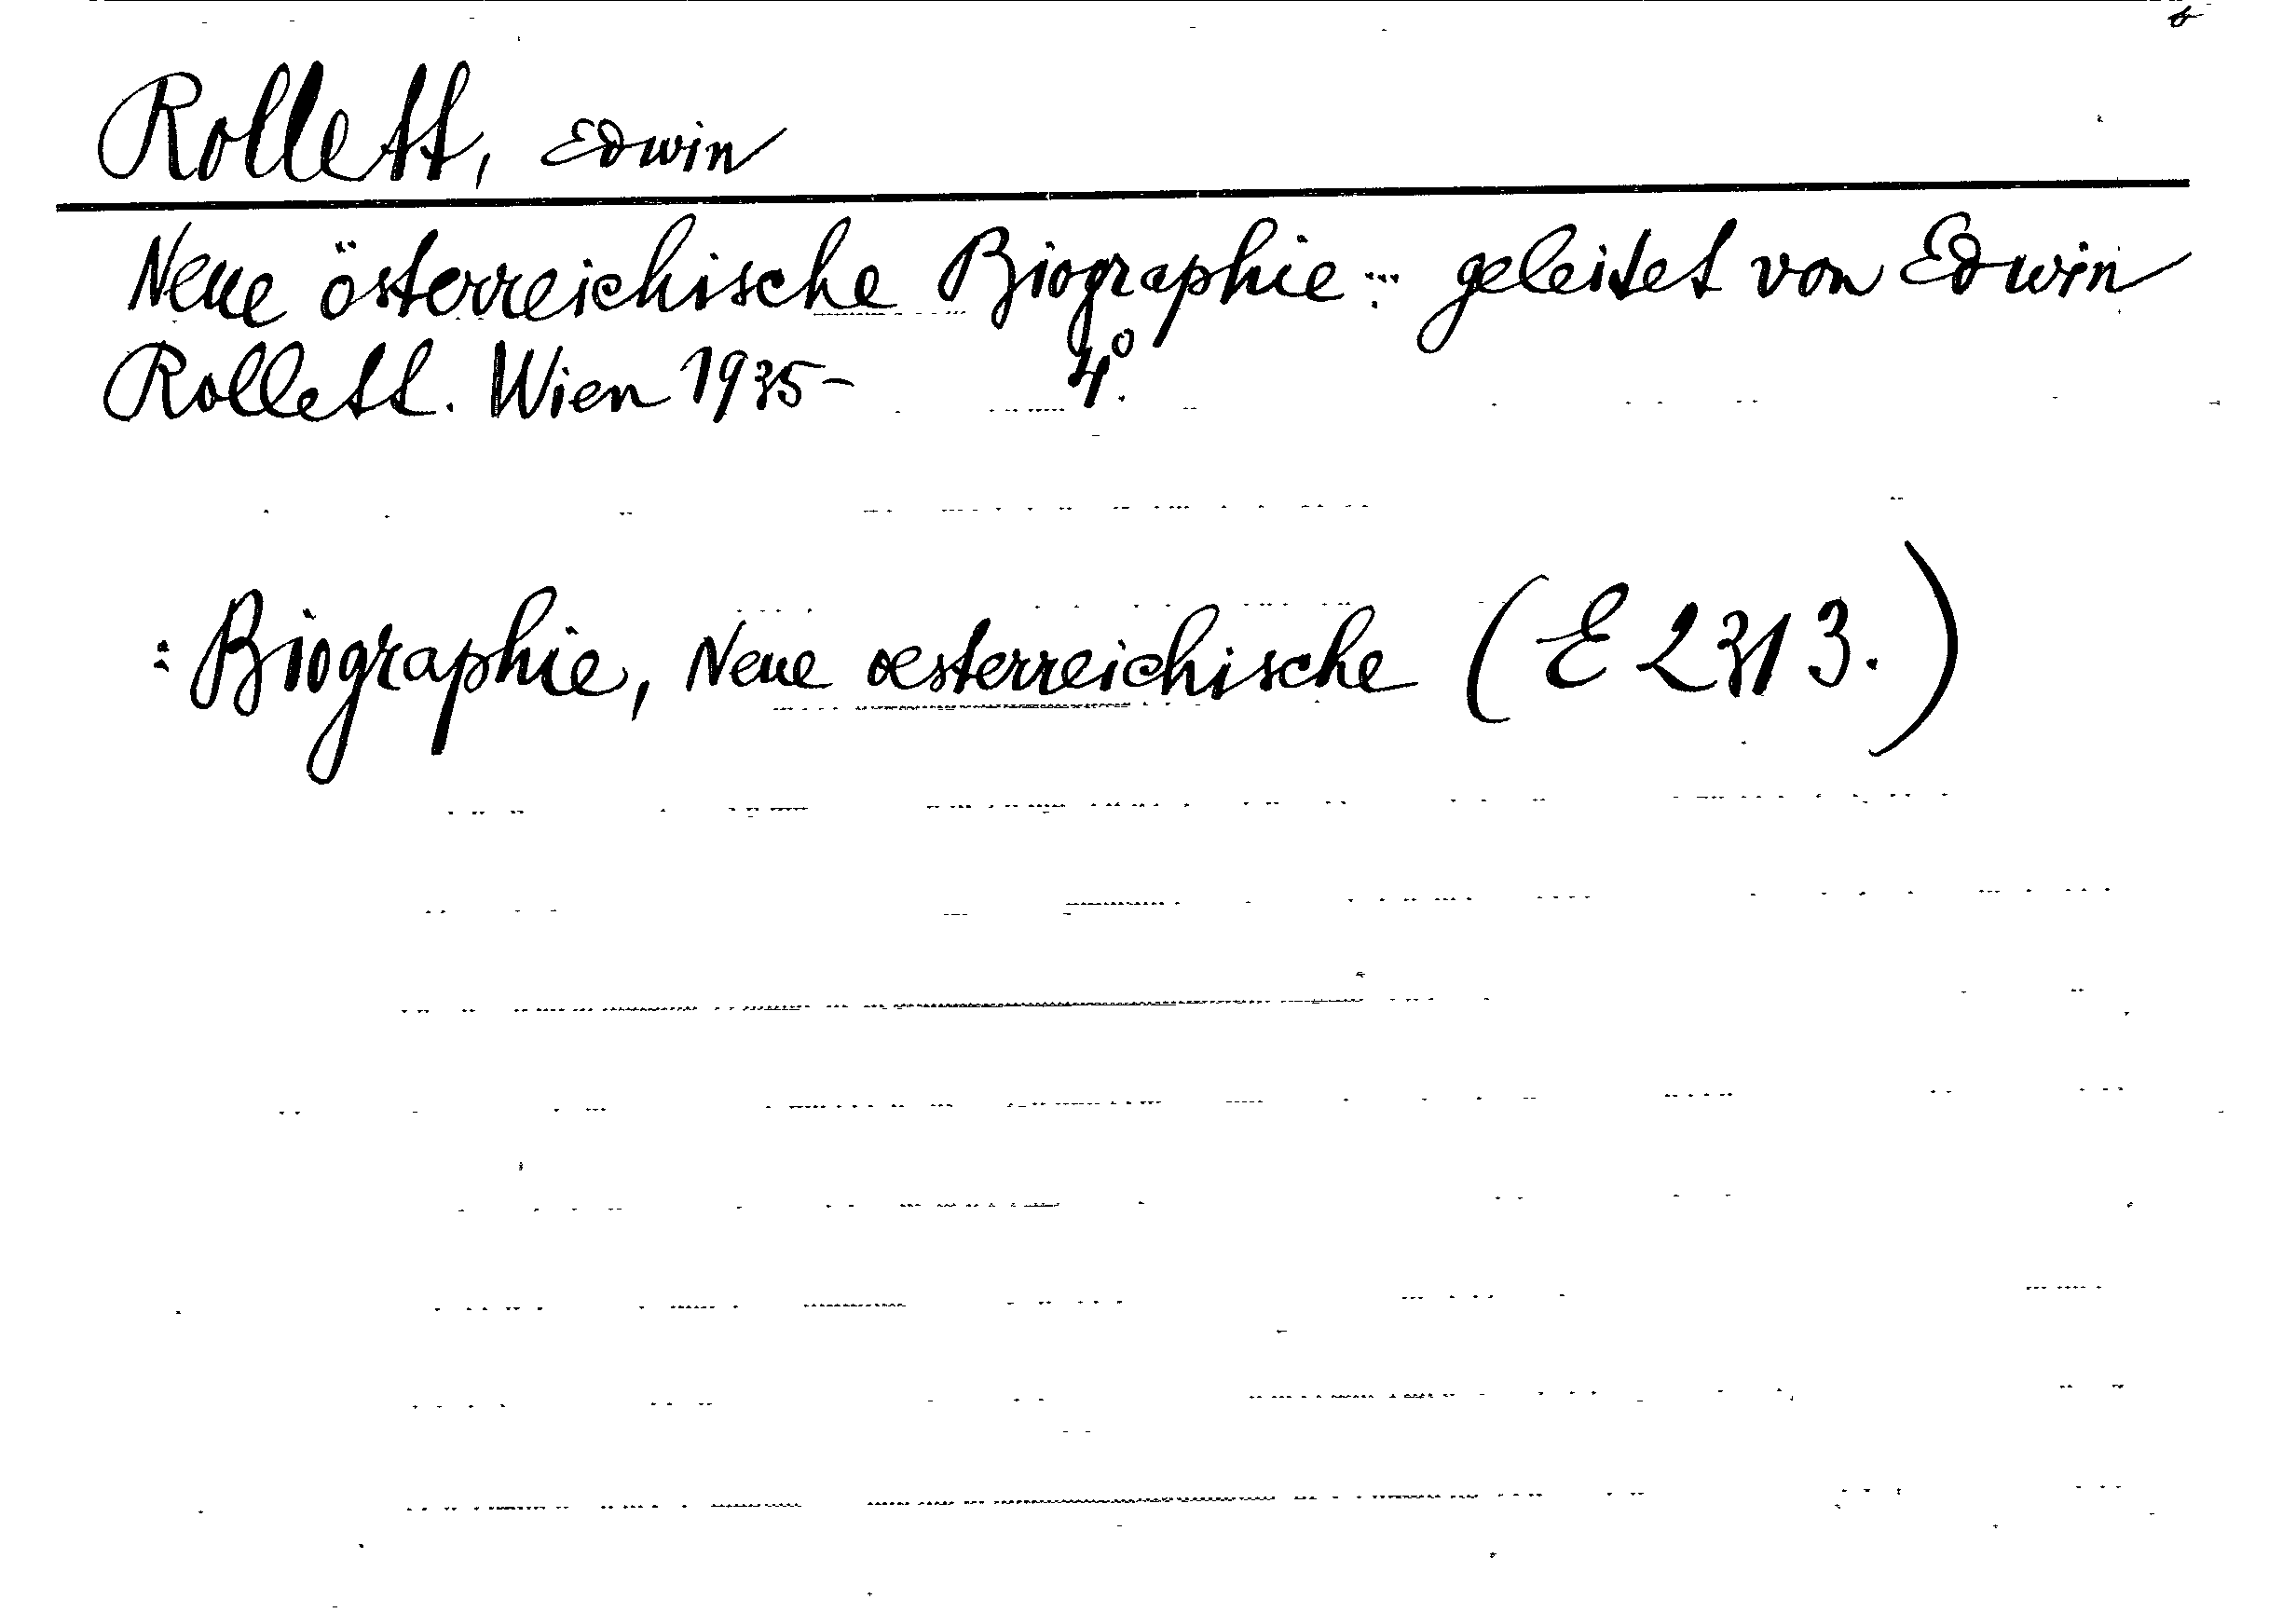 Rollett, Edwin
Neue österreichische Biographie ... geleitet von Edwin
Rollett. Wien 1935- 4°.
: Biographie, Neue oesterreichische (E 2313.)